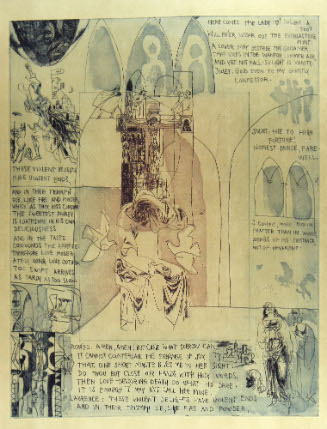 HERE COMES THE LADY O SO LIGHT A
FOOT
WILL NE'ER WEAR OUT THE EVERLASTING
FLINT
A LOVER MAY BESTRIDE THE GOSSAMER
THAT IDLES IN THE WANTON SUMMER AIR,
AND YET NOT FALL; SO LIGHT IS VANITY.
JULIET. GOOD EVEN TO MY GHOSTLY
CONFESSOR.
JULIET. HIE TO HIGH
FORTUNE!
HONEST NURSE, FARE-
WELL.
THESE VIOLENT DELIGHTS
HAVE VIOLENT ENDS,
AND IN THEIR TRIUMPH
DIE LIKE FIRE AND POWDER,
WHICH AS THEY KISS CONSUME
THE SWEETEST HONEY
IS LOATHSOME IN HIS OWN
DELICIOUSNESS
AND IN THE TASTE
CONFOUNDS THE APPETITE
THEREFORE LOVE MODER-
ATELY LONG LOVE DOTH SO
TOO SWIFT ARRIVES
AS TARDY AS TOO SLOW.
MORE RICH IN
MATTER THAN IN WORDS
OF HIS SUBSTANCE
NOT OF ORNAMENT
ROMEO: AMEN, AMEN, BUT COME WHAT SORROW CAN
IT CANNOT COUNTERVAIL THE EXCHANGE OF JOY
THAT ONE SHORT MINUTE GIVES ME IN HER SIGHT:
DO THOU BUT CLOSE OUR HANDS WITH HOLY WORDS,
THEN LOVE-DEVOURING DEATH DO WHAT HE DARE:
IT IS ENOUGH I MAY BUT CALL HER MINE.
LAWRENCE: THESE VIOLENT DELIGHTS HAVE VIOLENT ENDS
AND IN THEIR TRIUMPH DIE, LIKE FIRE AND POWDER,